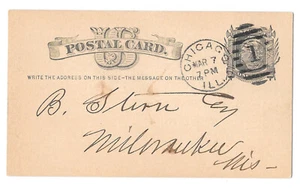 POSTAL CARD.
CHICAGO
MAR 7
7 PM
ILL.
1
WRITE THE ADDRESS ON THIS SIDE-THE MESSAGE ON THE OTHER
B. Stern Esq
Milwaukee
Wis-